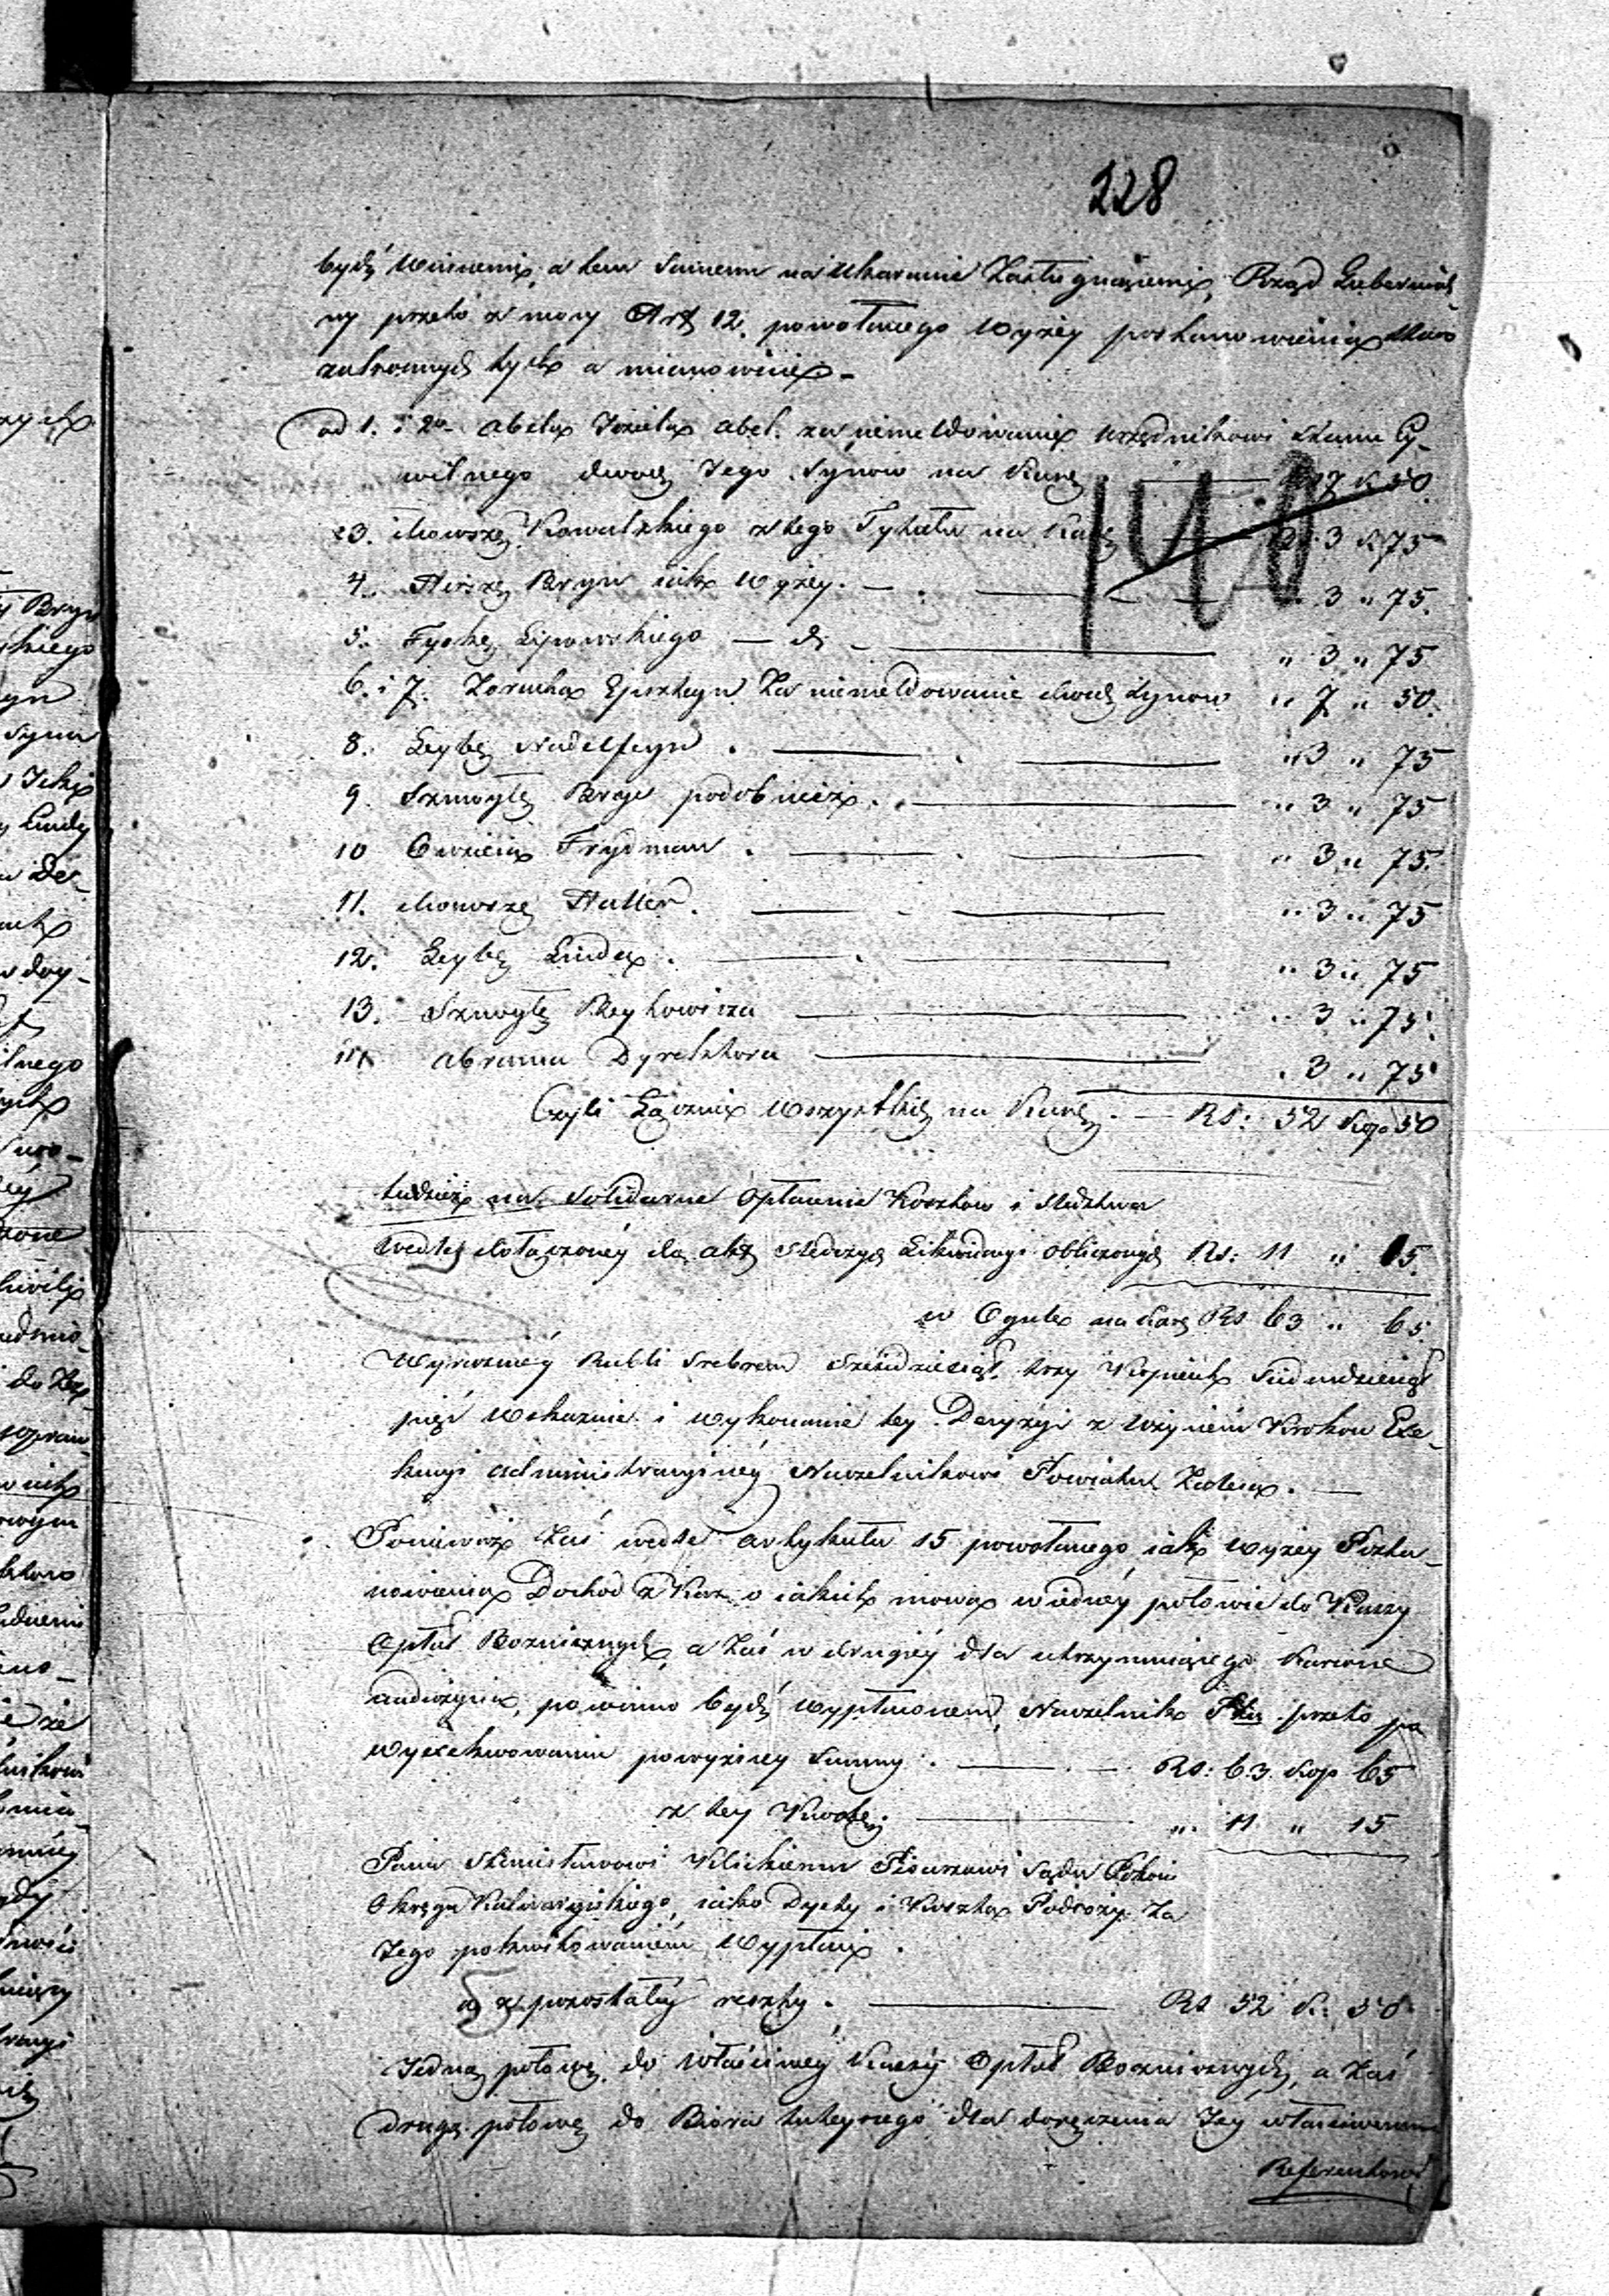 228
bydź winnemi, a tem samem na ukaranie zasługującemi, Rząd Gubernial-
ny przeto z mocy Art 12. powołanego wyżey postanowienia
tych a mianowicie
ad 1. i 2o Abela Joziela Abel. za niemeldowanie Urzędnikowi Stanu Cy-
wilnego dwóch Jego Synów na Karę 7 k 50.
3. Mowszę Kowalskiego z tego Tytułu na Karę 3 k 75
4. Herszę Bryn jak wyżey. — 3 „ 75.
5. Lipowskiego — d — „ 3 „ 75
6. i 7. Zorucha Epszteyn za niemeldowanie dwóch Synów „ 7 „ 50.
8. Leybę Nadelfeyn . — „ 3 „ 75
9. Szmoylę Bryn podobnież. — „ 3 „ 75
10 Frydman . — „ 3 „ 75.
11. Mowszę Haller. — „ 3 „ 75
12. Leybę Linde . — „ 3 „ 75
13. Szmoylę — „ 3 „ 75.
14 Abrama Dyrektora — „ 3 „ 75
Czyli Łącznie wszystkich na Karę . — RS: 52 Kop 50
tudzież na Solidarne opłacenie Kosztów i Sledztwa
wedle dołączoney do akt śledczych Likwidacyi obliczonych Rs: 11 „ 15.
w Ogule na Karę RS 63 „ 65
Wyraźniey Rubli Srebrem Sześćdziesiąt trzy Kopieiek Sześćdziesiąt
pięć wskazuie i wykonanie tey Decyzyi z użyciem Kroków Exe-
kucyi administracyiney Naczelnikowi Powiatu Zaleca. —
Ponieważ zaś wedle artykułu 15 powołanego jak wyżey Posta-
nowienia Dochod z Kar o jakich mowa w iedney połowie do Kassy
Opłat Bożnicznych, a zaś w drugiey dla utrzymuiącego
powinno bydź wypłaconem, Naczelnik Ptu przeto po
wyexekwowaniu powyższey Summy . — RS: 63 Kop 65
z tey Kwoty. — „ 11 „ 15
Panu Stanisławowi Pisarzowi Sądu Pokoiu
Okręgu Kalwaryiskiego, jako Dyety i Koszta Podróży za
Jego pokwitowaniem wypłaci .
a z pozostałey reszty . — RS 52 K: 50
Jedną połowę do właściwey Kassy Opłat Bożnicznych, a zaś
drugą połowę do Biura tuteyszego dla doręczenia Jey właściwemu
Referentowi